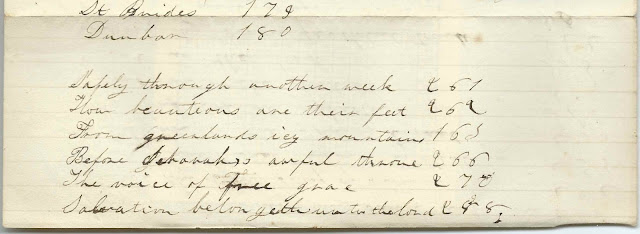 St Bruides 179
Dunbar 180
Safely through another week 261
How beauteous are their feet 262
From greenlands icy mountains 163
Before Jehovahs awful throne 266
The voice of free grace 278
Salvation belongeth unto the lord 285